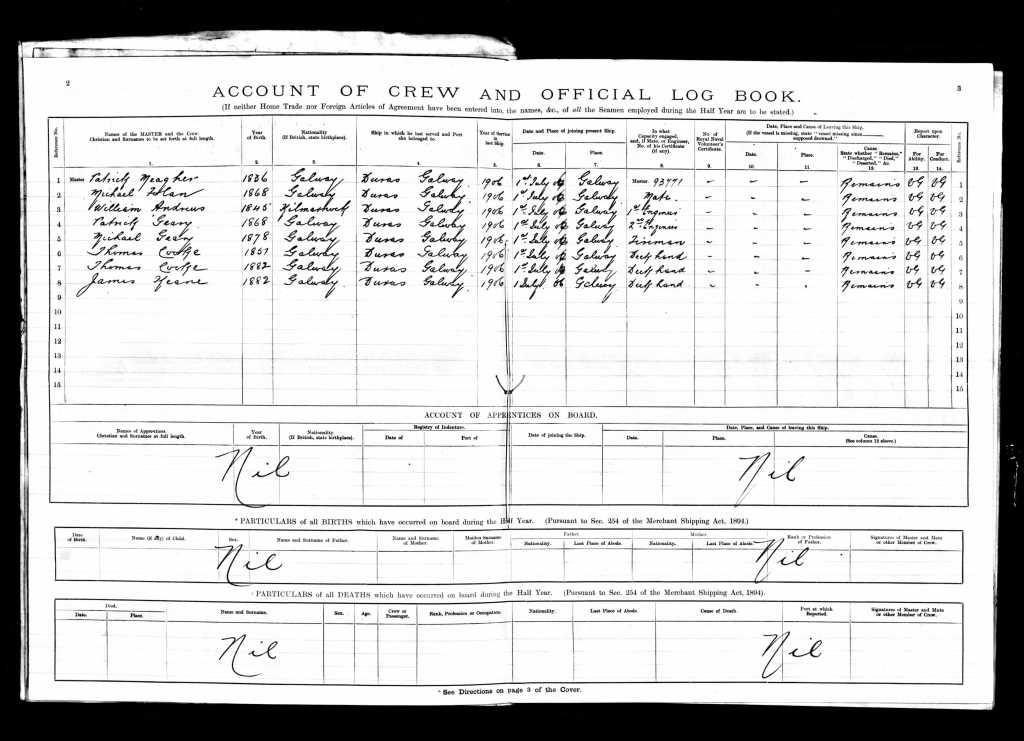 2
3
ACCOUNT OF CREW AND OFFICIAL LOG BOOK.
(If neither Home Trade nor Foreign Articles of Agreement have been entered into, the names, &c., of all the Seamen employed during the Half Year are to be stated.)
Reference No. Names of the MASTER and the Crew. Christian and Surnames to be set forth at full length. Year of Birth. Nationality (If British, state birthplace). Ship in which he last served and Port she belonged to. Year of Service in last Ship. Date and Place of joining present Ship. In what Capacity engaged, and, if Mate, or Engineer, No. of his Certificate (if any). No. of Royal Naval Volunteer's Certificate. Date, Place and Cause of Leaving this Ship. (If the vessel is missing, state "vessel missing since supposed drowned." Report upon Character. Reference No.
Date. Place. Date. Place. Cause State whether "Remains," "Discharged," "Died," "Deserted," &c. For Ability. For Conduct.
1. 2. 3. 4. 5. 6. 7. 8. 9. 10. 11. 12. 13. 14.
1 Master Patrick Meagher 1836 Galway Duras Galway 1906 1st July 06 Galway Master 93771 – – – Remains VG VG 1
2 Michael Folan 1868 Galway Duras Galway 1906 1st July 06 Galway Mate – – – Remains VG VG 2
3 William Andrews 1845 Kilmarnock Duras Galway 1906 1st July 06 Galway 1st Engineer – – – Remains VG VG 3
4 Patrick Geary 1868 Galway Duras Galway 1906 1st July 06 Galway 2nd Engineer – – – Remains VG VG 4
5 Michael Geary 1878 Galway Duras Galway 1906 1st July 06 Galway Fireman – – – Remains VG VG 5
6 Thomas Cooke Galway Duras Galway 1906 1st July 06 Galway Deck hand – – – Remains VG VG 6
7 Thomas Cooke 1882 Galway Duras Galway 1906 1st July 06 Galway Deck hand – – – Remains VG VG 7
8 James Keane 1882 Galway Duras Galway 1906 1 July 06 Galway Deck hand – – – Remains VG VG 8
9 9
10 10
11 11
12 12
13 13
14 14
15 15
ACCOUNT OF APPRENTICES ON BOARD.
Names of Apprentices. Christian and Surnames at full length. Year of Birth. Nationality (If British, state birthplace). Registry of Indenture. Date of joining the Ship. Date, Place, and Cause of leaving this Ship.
Date of Port of Date. Place. Cause. (See column 12 above.)
Nil Nil
* PARTICULARS of all BIRTHS which have occurred on board during the Half Year. (Pursuant to Sec. 254 of the Merchant Shipping Act, 1894.)
Date of Birth. Name (if any) of Child. Sex. Name and Surname of Father. Name and Surname of Mother. Maiden Surname of Mother. Father. Mother. Rank or Profession of Father. Signatures of Master and Mate or other Member of Crew.
Nationality. Last Place of Abode. Nationality. Last Place of Abode.
Nil Nil
* PARTICULARS of all DEATHS which have occurred on board during the Half Year. (Pursuant to Sec. 254 of the Merchant Shipping Act, 1894).
Died. Name and Surname. Sex. Age. Crew or Passenger. Rank, Profession or Occupation. Nationality. Last Place of Abode. Cause of Death. Port at which Reported. Signatures of Master and Mate or other Member of Crew.
Date. Place.
Nil Nil
* See Directions on page 3 of the Cover.